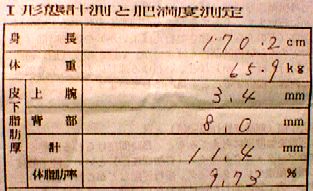 I 形態計測と肥満度測定
身長 170.2cm
体重 65.9kg
皮下脂肪厚
上腕 3.4 mm
背部 8.0 mm
計 11.4 mm
体脂肪率 9.73 %